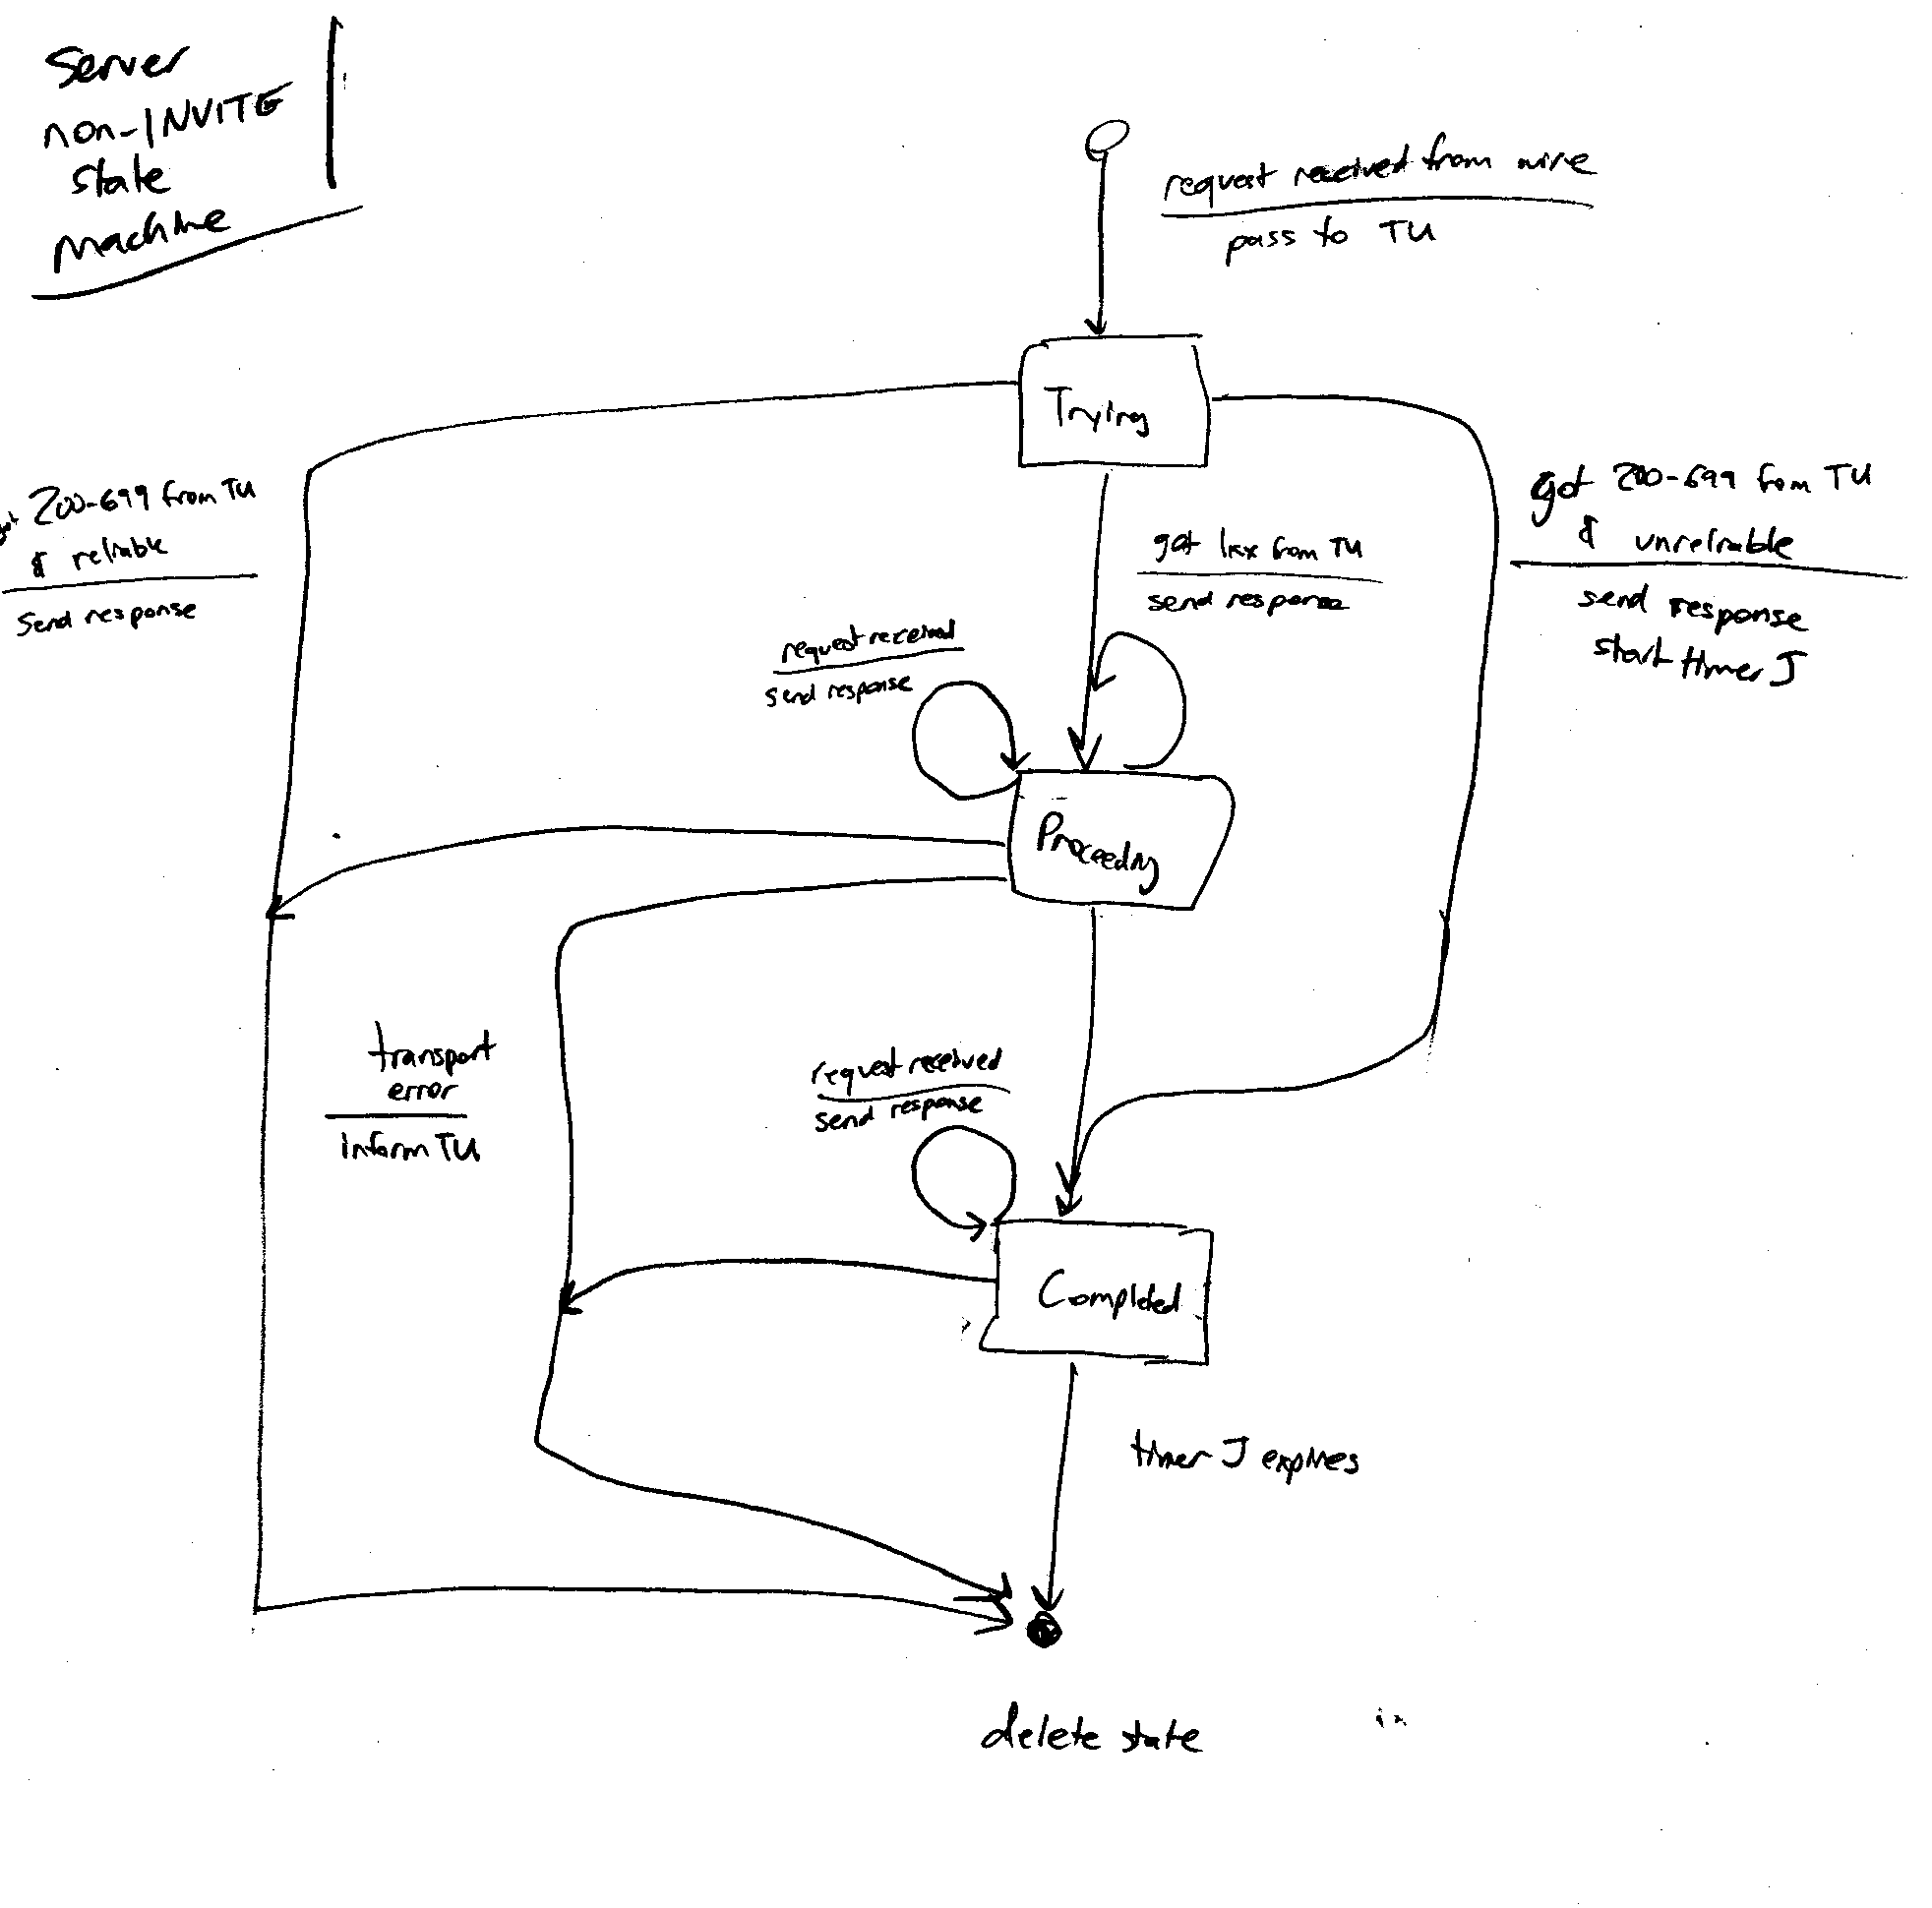 Server
non-INVITE
state
machine
request received from wire
pass to TU
Trying
got 200-699 from TU
& reliable
send response
got 1xx from TU
send response
got 200-699 from TU
& unreliable
send response
start timer J
request received
send response
Proceeding
transport
error
inform TU
request received
send response
Completed
timer J expires
delete state